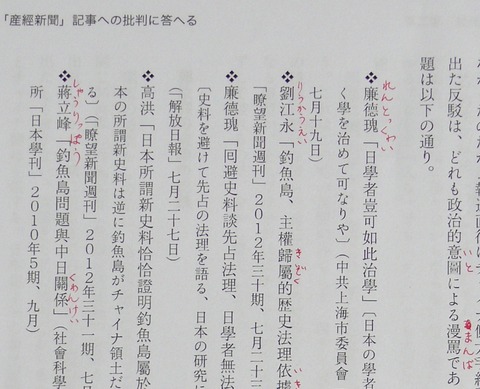 「産經新聞」記事への批判に答へる
出た反駁は、どれも政治的意圖による漫罵であ
いと
まんば
題は以下の通り。
❖廉德瑰「日學者豈可如此治學」〔日本の學者
れんとくくわい
く學を治めて可なりや〕（中共上海市委員會
七月十九日）
❖劉江永「釣魚島、主權歸屬的歷史法理依據
りうかうえい
きぞく
「瞭望新聞週刊」2012年三十期、七月二十
❖廉德瑰「回避史料談先占法理、日學者無法
〔史料を避けて先占の法理を語る、日本の研究に
（「解放日報」七月二十七日）
❖高洪「日本所謂新史料恰恰證明釣魚島屬於
本の所謂新史料は逆に釣魚島がチャイナ領土だ
る〕（「瞭望新聞週刊」2012年三十一期、七
❖蔣立峰「釣魚島問題與中日關係」（社會科學
しやうりつぽう
くわんけい
所「日本學刊」2010年5期、九月）